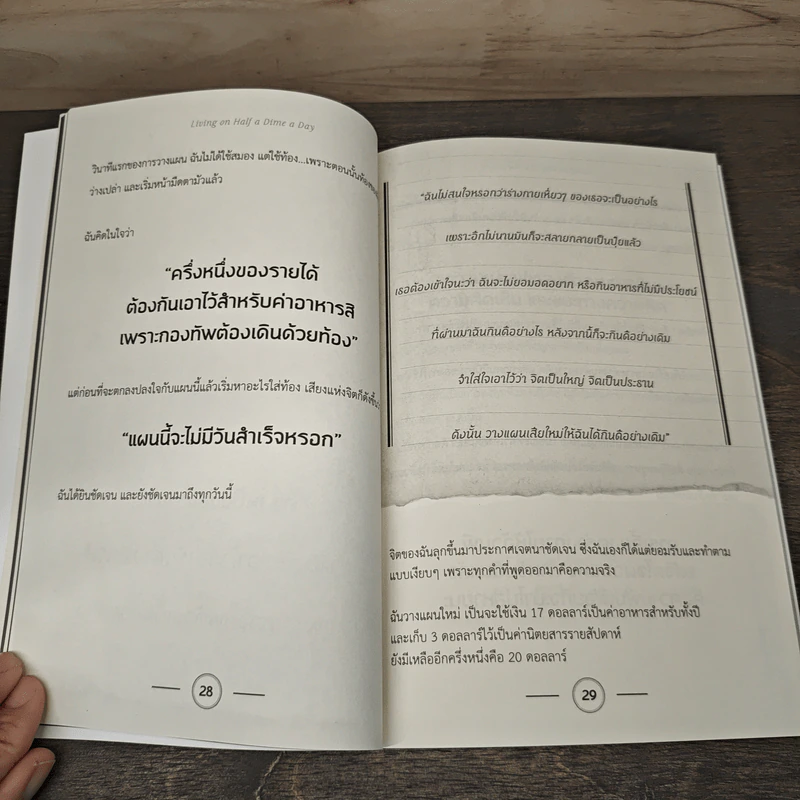 Living on Half a Dime a Day
วินาทีแรกของการวางแผน ฉันไม่ได้ใช้สมอง แต่ใช้ท้อง...เพราะตอนนั้นท้อง
ว่างเปล่า และเริ่มหน้ามืดตามัวแล้ว
ฉันคิดในใจว่า
“ครึ่งหนึ่งของรายได้
ต้องกันเอาไว้สำหรับค่าอาหารสิ
เพราะกองทัพต้องเดินด้วยท้อง”
แต่ก่อนที่จะตกลงปลงใจกับแผนนี้แล้วเริ่มหาอะไรใส่ท้อง เสียงแห่งจิตก็ดังขึ้น
“แผนนี้จะไม่มีวันสำเร็จหรอก”
ฉันได้ยินชัดเจน และยังชัดเจนมาถึงทุกวันนี้
28
“ฉันไม่สนใจหรอกว่าร่างกายเหี่ยวๆ ของเธอจะเป็นอย่างไร
เพราะอีกไม่นานมันก็จะสลายกลายเป็นปุ๋ยแล้ว
เธอต้องเข้าใจนะว่า ฉันจะไม่ยอมอดอยาก หรือกินอาหารที่ไม่มีประโยชน์
ที่ผ่านมาฉันกินดีอย่างไร หลังจากนี้ก็จะกินดีอย่างเดิม
จำใส่ใจเอาไว้ว่า จิตเป็นใหญ่ จิตเป็นประธาน
ดังนั้น วางแผนเสียใหม่ให้ฉันได้กินดีอย่างเดิม”
จิตของฉันลุกขึ้นมาประกาศเจตนาชัดเจน ซึ่งฉันเองก็ได้แต่ยอมรับและทำตาม
แบบเงียบๆ เพราะทุกคำที่พูดออกมาคือความจริง
ฉันวางแผนใหม่ เป็นจะใช้เงิน 17 ดอลลาร์เป็นค่าอาหารสำหรับทั้งปี
และเก็บ 3 ดอลลาร์ไว้เป็นค่านิตยสารรายสัปดาห์
ยังมีเหลืออีกครึ่งหนึ่งคือ 20 ดอลลาร์
29